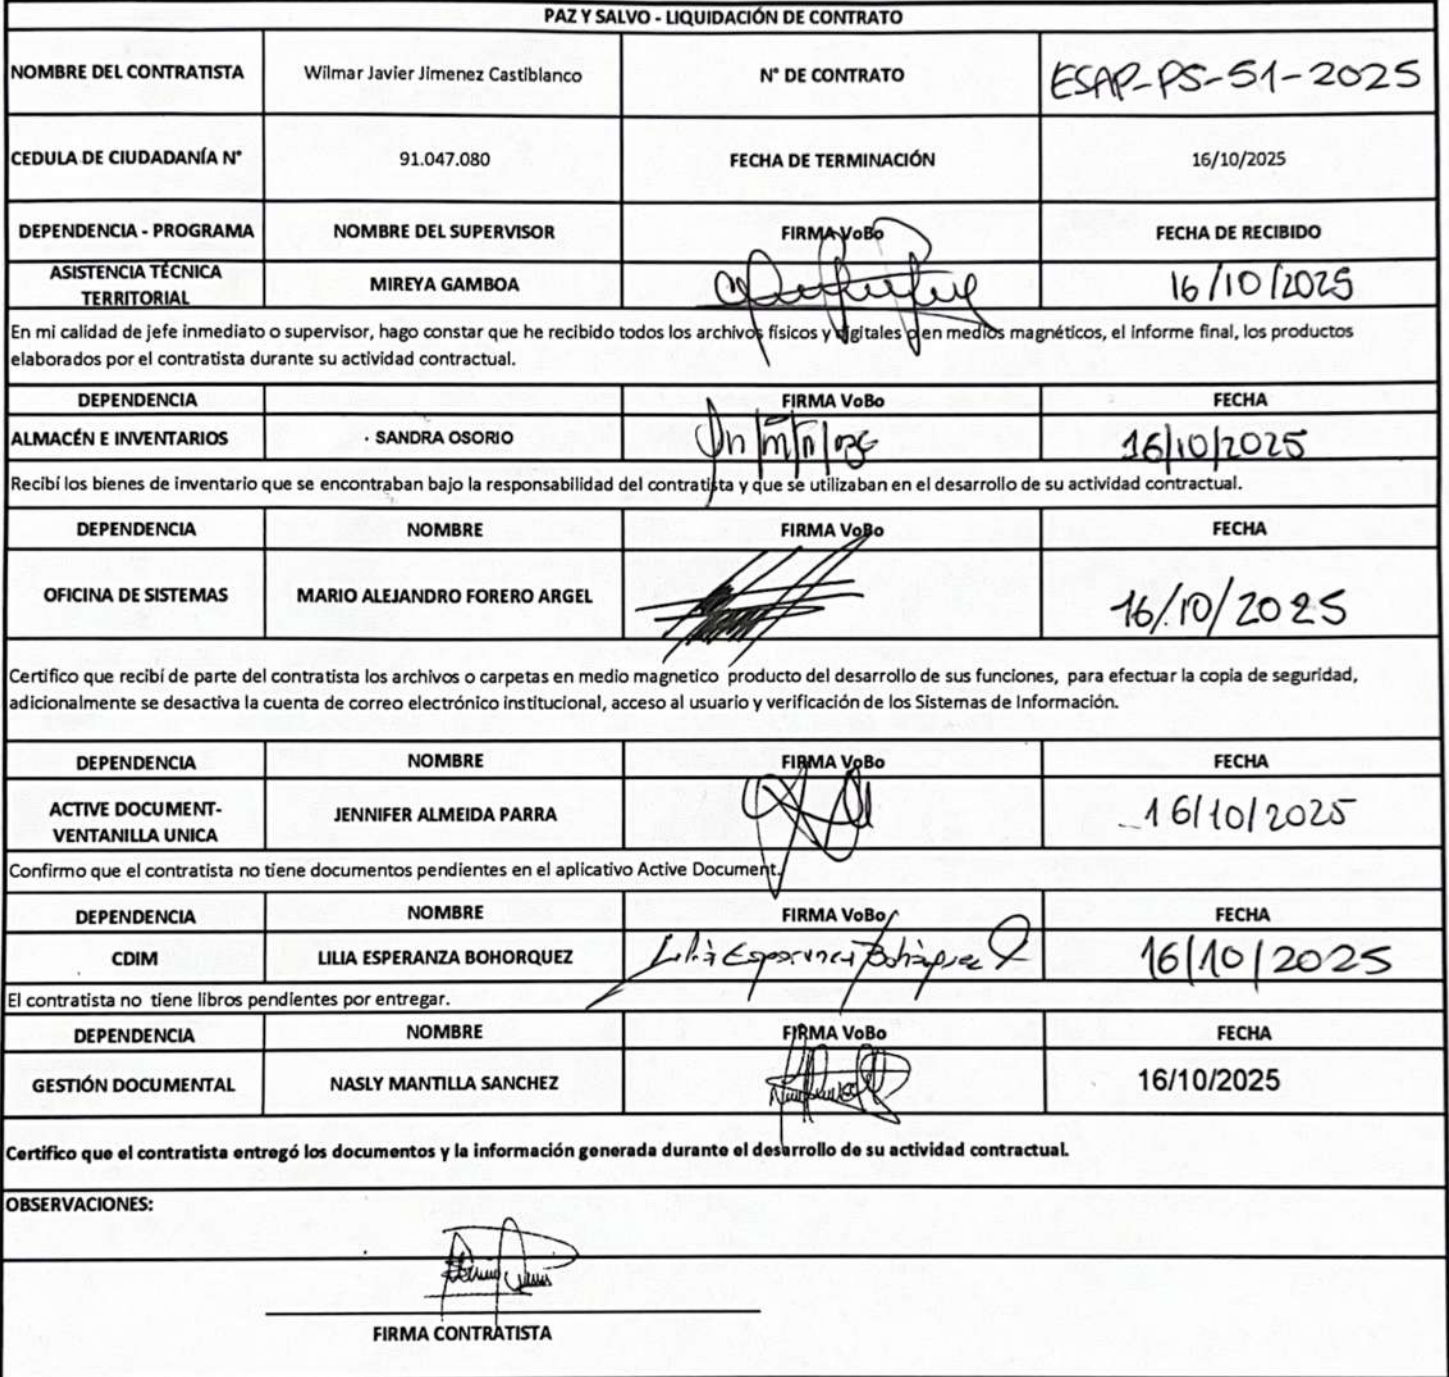 PAZ Y SALVO - LIQUIDACIÓN DE CONTRATO
NOMBRE DEL CONTRATISTA Wilmar Javier Jimenez Castiblanco N° DE CONTRATO ESAP-PS-51-2025
CEDULA DE CIUDADANÍA N° 91.047.080 FECHA DE TERMINACIÓN 16/10/2025
DEPENDENCIA - PROGRAMA NOMBRE DEL SUPERVISOR FIRMA VoBo FECHA DE RECIBIDO
ASISTENCIA TÉCNICA TERRITORIAL MIREYA GAMBOA 16/10/2025
En mi calidad de jefe inmediato o supervisor, hago constar que he recibido todos los archivos físicos y digitales o en medios magnéticos, el informe final, los productos
elaborados por el contratista durante su actividad contractual.
DEPENDENCIA FIRMA VoBo FECHA
ALMACÉN E INVENTARIOS SANDRA OSORIO 16/10/2025
Recibí los bienes de inventario que se encontraban bajo la responsabilidad del contratista y que se utilizaban en el desarrollo de su actividad contractual.
DEPENDENCIA NOMBRE FIRMA VoBo FECHA
OFICINA DE SISTEMAS MARIO ALEJANDRO FORERO ARGEL 16/10/2025
Certifico que recibí de parte del contratista los archivos o carpetas en medio magnetico producto del desarrollo de sus funciones, para efectuar la copia de seguridad,
adicionalmente se desactiva la cuenta de correo electrónico institucional, acceso al usuario y verificación de los Sistemas de Información.
DEPENDENCIA NOMBRE FIRMA VoBo FECHA
ACTIVE DOCUMENT- VENTANILLA UNICA JENNIFER ALMEIDA PARRA 16/10/2025
Confirmo que el contratista no tiene documentos pendientes en el aplicativo Active Document.
DEPENDENCIA NOMBRE FIRMA VoBo FECHA
CDIM LILIA ESPERANZA BOHORQUEZ Lilia Esperanza Bohórquez 16/10/2025
El contratista no tiene libros pendientes por entregar.
DEPENDENCIA NOMBRE FIRMA VoBo FECHA
GESTIÓN DOCUMENTAL NASLY MANTILLA SANCHEZ 16/10/2025
Certifico que el contratista entregó los documentos y la información generada durante el desarrollo de su actividad contractual.
OBSERVACIONES:
FIRMA CONTRATISTA